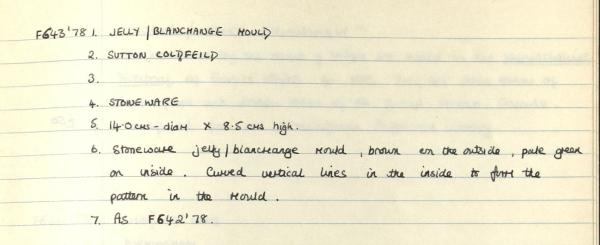 F643'78 1. JELLY / BLANCHANGE MOULD
2. SUTTON COLDFEILD
3.
4. STONEWARE
5. 14.0 cms - diam x 8.5 cms high.
6. Stoneware jelly / blanchange mould, brown on the outside, pale green
on inside. Curved vertical lines in the inside to form the
pattern in the mould.
7. As F642'78.